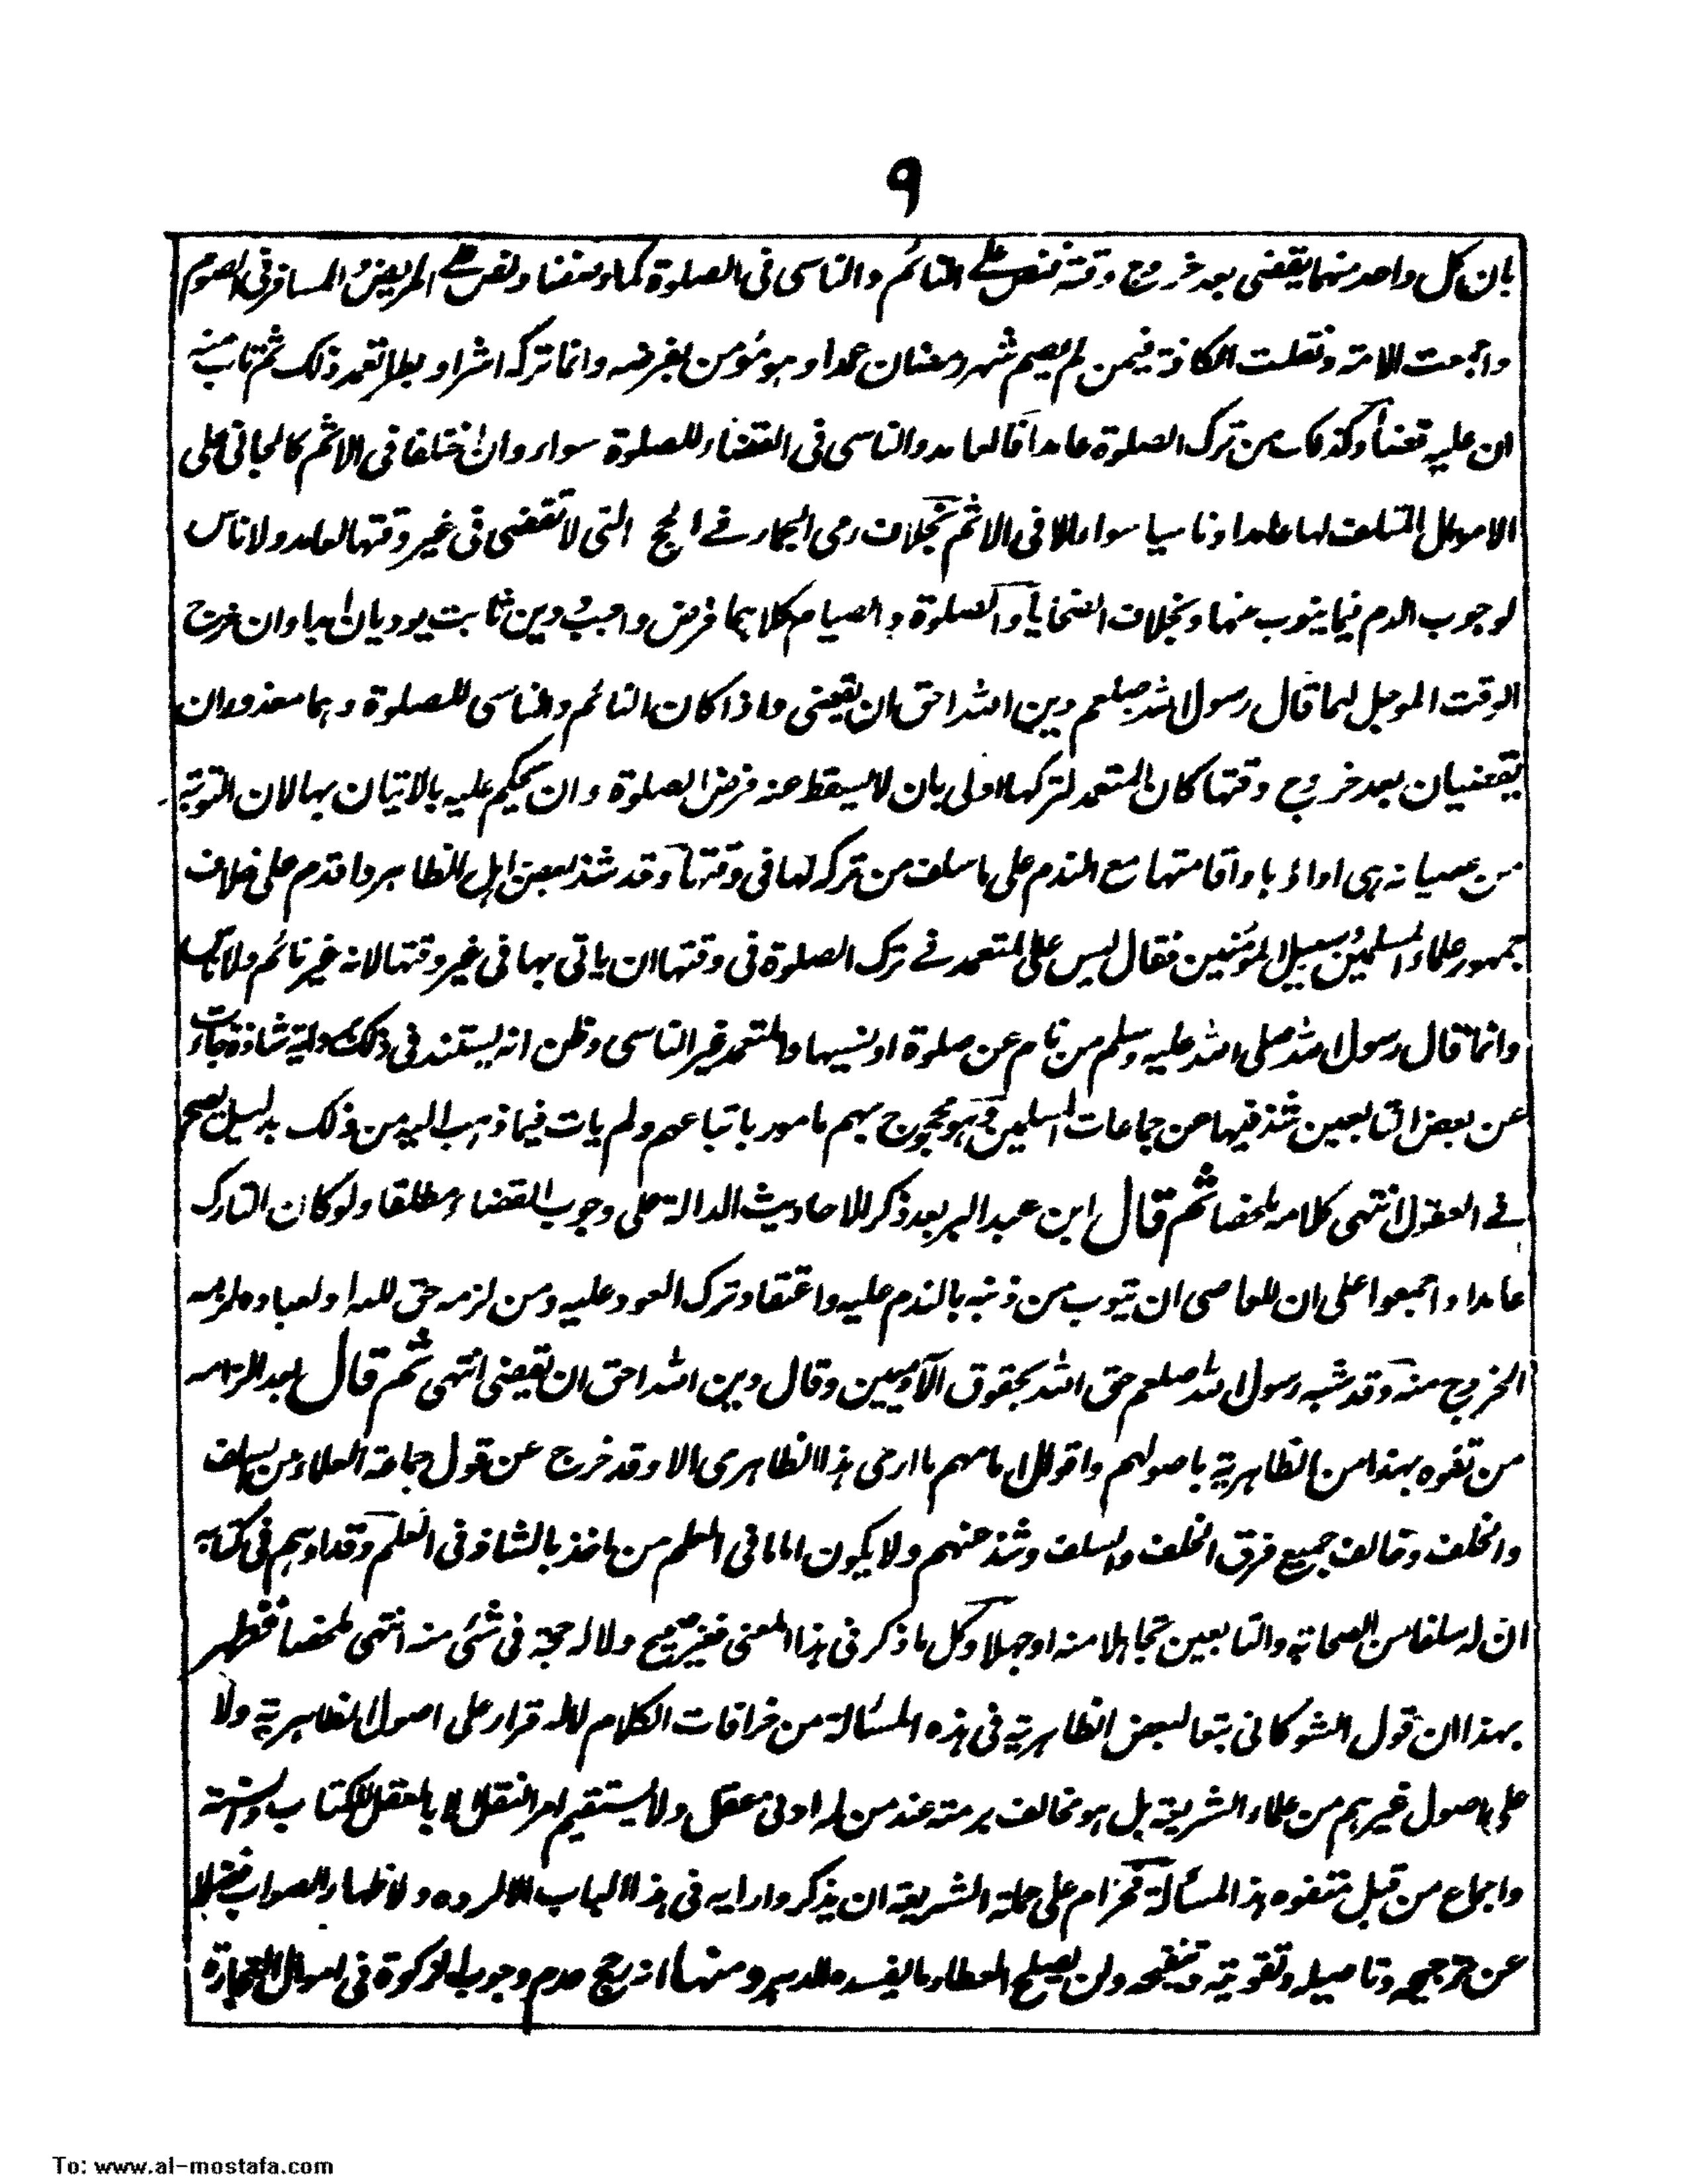 ٩
بان كل واحد منهما يقضى بعد خروج وقته فنص على النائم والناسى فى الصلوة كما وصفنا ونص على المريض والمسافر فى الصوم
واجمعت الامة ونقلت الكافة فيمن لم يصم شهر رمضان عمدا وهو مؤمن بفرضه وانما تركه اشرا وبطرا تعمد ذلك ثم تاب منه
ان عليه قضاءه وكذلك من ترك الصلوة عامدا فالعامد والناسى فى القضاء للصلوة سواء وان اختلفا فى الاثم كالجانى على
الاموال المتلف لها عامدا وناسيا سواء الا فى الاثم بخلاف رمى الجمار فے الحج التى لا تقضى فى غير وقتها لعامد ولا ناس
لوجوب الدم فيما ينوب منها وبخلاف الضحايا والصلوة والصيام كلاهما فرض واجب ودين ثابت يوديان ابدا وان خرج
الوقت الموجل لهما قال رسول الله صلعم دين الله احق ان يقضى واذا كان النائم والناسى للصلوة وهما معذوران
يقضيان بعد خروج وقتها كان المتعمد لتركها اولى بان لا يسقط عنه فرض الصلوة وان يحكم عليه بالاتيان بها لان التوبة
من عصيانه هى اداؤها واقامتها مع الندم على ما سلف من تركه لها فى وقتها وقد شذ بعض اهل الظاهر واقدم على خلاف
جمهور علماء المسلمين وسبيل المؤمنين فقال ليس على المتعمد فے ترك الصلوة فى وقتها ان ياتى بها فى غير وقتها لانه غير نائم ولا ناس
وانما قال رسول الله صلى الله عليه وسلم من نام عن صلوة او نسيها والمتعمد غير الناسى وظن انه يستند فى ذلك برواية شاذة جاءت
عن بعض التابعين شذ فيها عن جماعات المسلمين وهو محجوج بهم مامور باتباعهم ولم يات فيما ذهب اليه من ذلك بدليل يصح
فے العقول انتهى كلامه ملخصا ثم قال ابن عبد البر بعد ذكر للاحاديث الدالة على وجوب القضاء مطلقا ولو كان التارك
عامدا واجمعوا على ان للعاصى ان يتوب من ذنبه بالندم عليه واعتقاد ترك العود عليه ومن لزمه حق لله او لعباده لزمه
الخروج منه وقد شبه رسول الله صلعم حق الله بحقوق الآدميين وقال دين الله احق ان يقضى انتهى ثم قال بعد الزامه
من تفوه بهذا من الظاهرية باصولهم واقوال امامهم ما ارى هذا الظاهرى الا وقد خرج عن قول جماعة العلماء من السلف
والخلف وخالف جميع فرق الخلف والسلف وشذ عنهم ولا يكون اماما فى العلم من ياخذ بالشاذ فى العلم وقد اوهم فى كتابه
ان له سلفا من الصحابة والتابعين تجاهلا منه او جهلا وكل ما ذكر فى هذا المعنى فغير صحيح ولا له حجة فى شئ منه انتهى ملخصا فظهر
بهذا ان قول الشوكانى تبعا لبعض الظاهرية فى هذه المسئالة من خرافات الكلام لا له قرار على اصول الظاهرية ولا
على اصول غيرهم من علماء الشريعة بل هو مخالف برمته عند من له ادنى عقل ولا يستقيم امر النقل الا بالعقل للكتاب والسنة
واجماع من قبل متفوه هذا المسألة فحرام على حملة الشريعة ان يذكروا رايه فى هذا الباب الا لرده ولاظهار الصواب فضلا
عن ترجيحه وتاصيله وتقويته وتنقيحه ولن يصلح العطار ما يفسده الدهر ومنها انه رجح عدم وجوب الزكوة فى اموال التجارة
To: www.al-mostafa.com